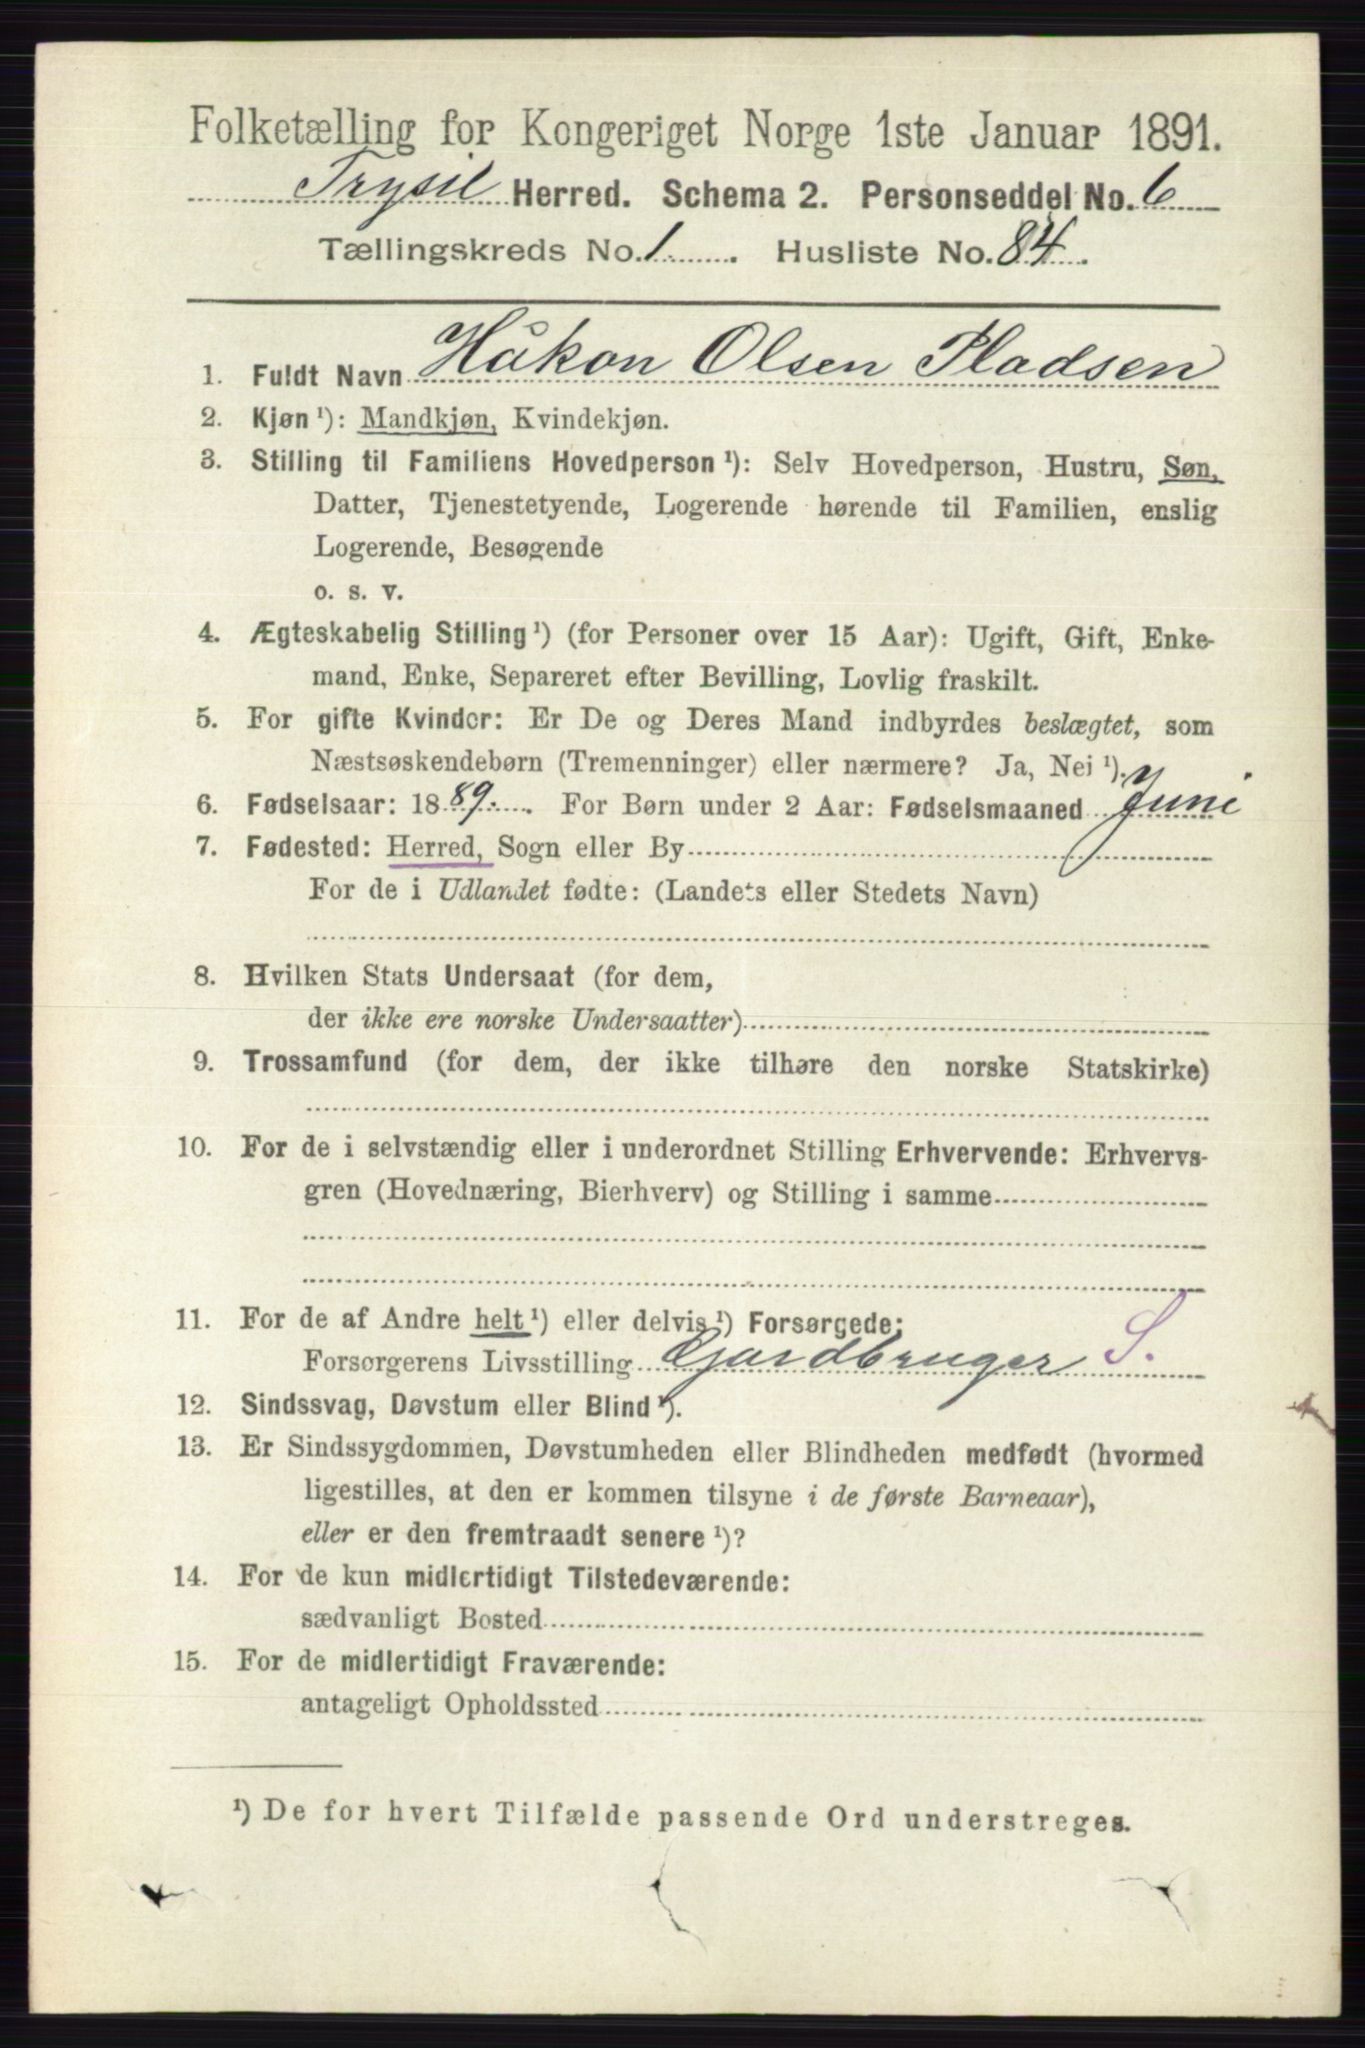 Folketælling for Kongeriget Norge 1ste Januar 1891.
Trysil Herred. Schema 2. Personseddel No. 6
Tællingskreds No. 1. Husliste No. 84.
1. Fuldt Navn Håkon Olsen Pladsen
2. Kjøn ¹): Mandkjøn, Kvindekjøn.
3. Stilling til Familiens Hovedperson ¹): Selv Hovedperson, Hustru, Søn,
Datter, Tjenestetyende, Logerende hørende til Familien, enslig
Logerende, Besøgende
o. s. v.
4. Ægteskabelig Stilling ¹) (for Personer over 15 Aar): Ugift, Gift, Enke-
mand, Enke, Separeret efter Bevilling, Lovlig fraskilt.
5. For gifte Kvinder: Er De og Deres Mand indbyrdes beslægtet, som
Næstsøskendebørn (Tremenninger) eller nærmere? Ja, Nei ¹).
6. Fødselsaar: 1889. For Børn under 2 Aar: Fødselsmaaned Juni
7. Fødested: Herred, Sogn eller By
For de i Udlandet fødte: (Landets eller Stedets Navn)
8. Hvilken Stats Undersaat (for dem,
der ikke ere norske Undersaatter)
9. Trossamfund (for dem, der ikke tilhøre den norske Statskirke)
10. For de i selvstændig eller i underordnet Stilling Erhvervende: Erhvervs-
gren (Hovednæring, Bierhverv) og Stilling i samme
11. For de af Andre helt ¹) eller delvis ¹) Forsørgede:
Forsørgerens Livsstilling Gardbruger S.
12. Sindssvag, Døvstum eller Blind ¹).
13. Er Sindssygdommen, Døvstumheden eller Blindheden medfødt (hvormed
ligestilles, at den er kommen tilsyne i de første Barneaar),
eller er den fremtraadt senere ¹)?
14. For de kun midlertidigt Tilstedeværende:
sædvanligt Bosted
15. For de midlertidigt Fraværende:
antageligt Opholdssted
¹) De for hvert Tilfælde passende Ord understreges.